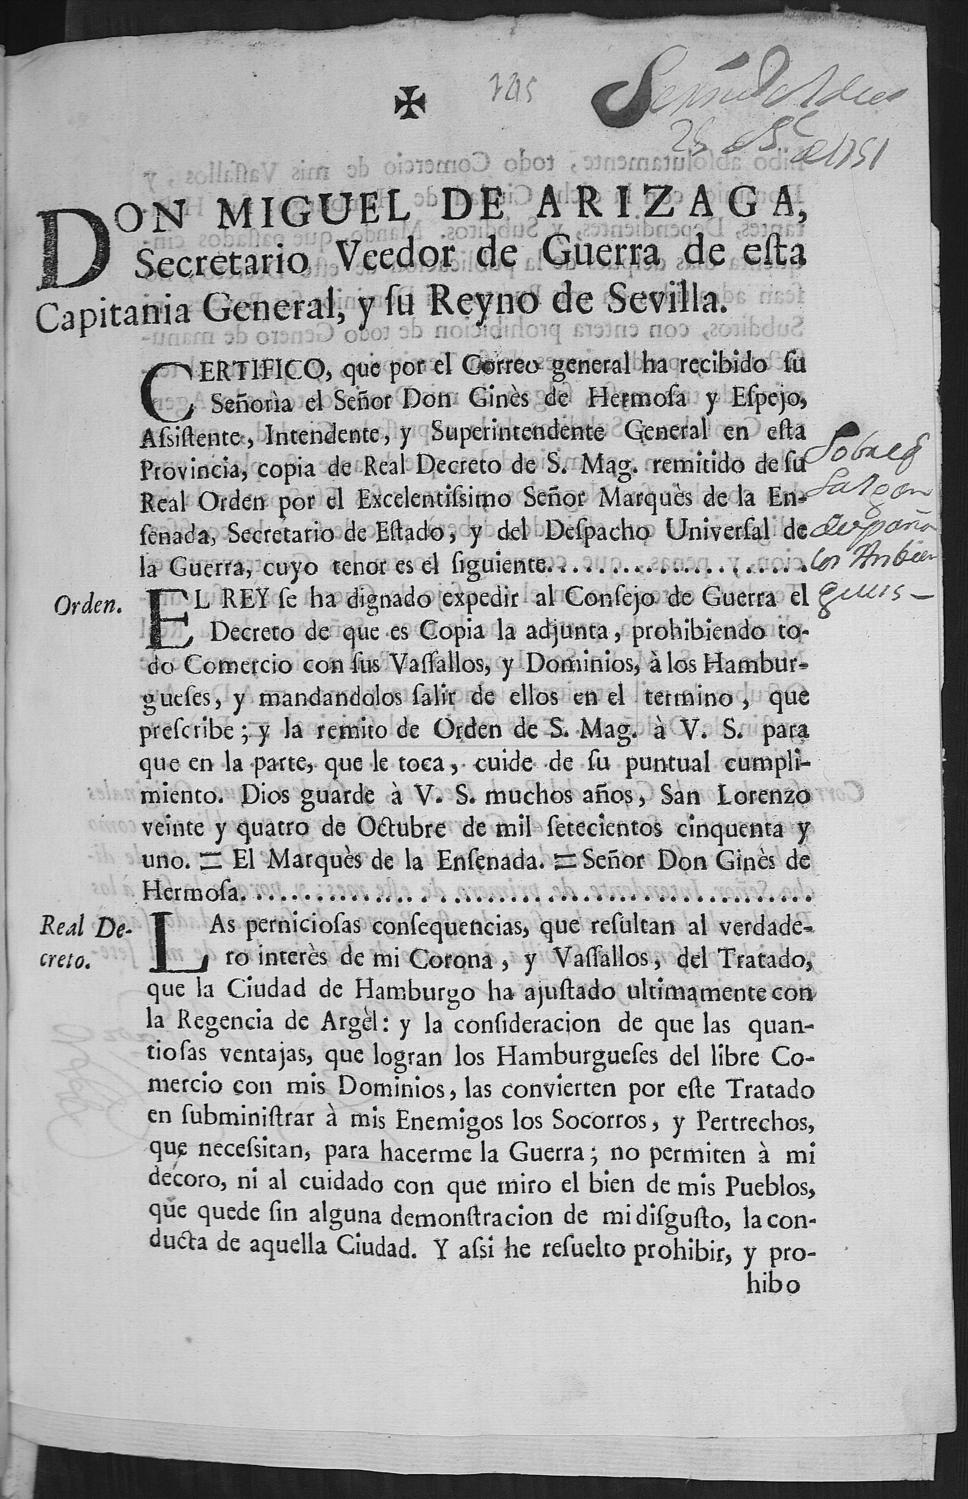 ✠
DON MIGUEL DE ARIZAGA,
Secretario Veedor de Guerra de eſta
Capitania General, y ſu Reyno de Sevilla.
CERTIFICO, que por el Correo general ha recibido ſu
Señorìa el Señor Don Ginès de Hermoſa y Eſpejo,
Aſsiſtente, Intendente, y Superintendente General en eſta
Provincia, copia de Real Decreto de S. Mag. remitido de ſu
Real Orden por el Excelentiſsimo Señor Marquès de la En-
ſenada, Secretario de Eſtado, y del Deſpacho Univerſal de
la Guerra, cuyo tenor es el ſiguiente.
Orden.
EL REY ſe ha dignado expedir al Conſejo de Guerra el
Decreto de que es Copia la adjunta, prohibiendo to-
do Comercio con ſus Vaſſallos, y Dominios, à los Hambur-
gueſes, y mandandolos ſalir de ellos en el termino, que
preſcribe; y la remito de Orden de S. Mag. à V. S. para
que en la parte, que le toca, cuide de ſu puntual cumpli-
miento. Dios guarde à V. S. muchos años, San Lorenzo
veinte y quatro de Octubre de mil ſetecientos cinquenta y
uno. = El Marquès de la Enſenada. = Señor Don Ginès de
Hermoſa.
Real De-
creto.
LAs pernicioſas conſequencias, que reſultan al verdade-
ro interès de mi Corona, y Vaſſallos, del Tratado,
que la Ciudad de Hamburgo ha ajuſtado ultimamente con
la Regencia de Argèl: y la conſideracion de que las quan-
tioſas ventajas, que logran los Hamburgueſes del libre Co-
mercio con mis Dominios, las convierten por eſte Tratado
en ſubminiſtrar à mis Enemigos los Socorros, y Pertrechos,
que neceſsitan, para hacerme la Guerra; no permiten à mi
decoro, ni al cuidado con que miro el bien de mis Pueblos,
que quede ſin alguna demonſtracion de mi diſguſto, la con-
ducta de aquella Ciudad. Y aſsi he reſuelto prohibir, y pro-
hibo